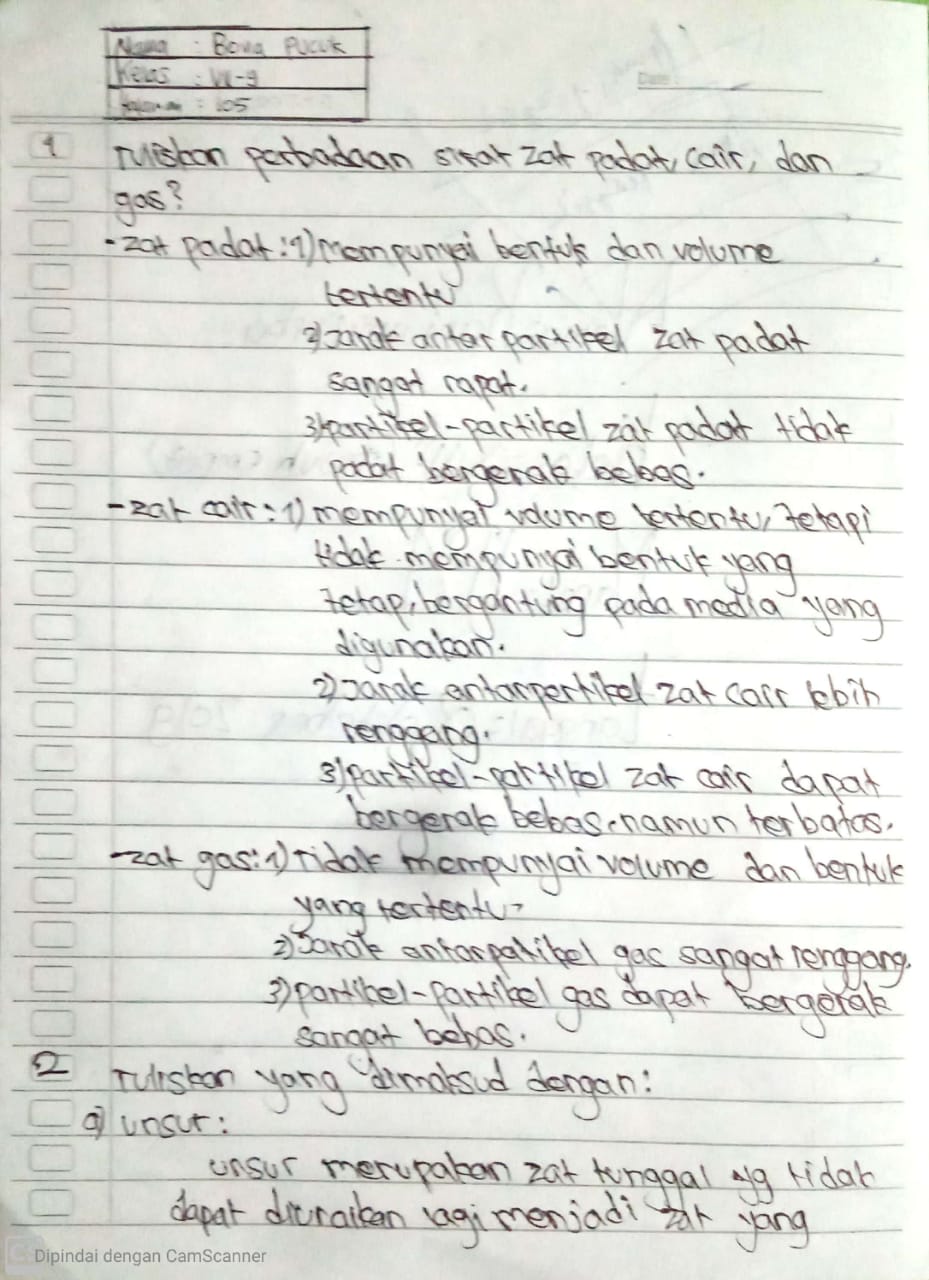 Nama : Bova Pucuk
Kelas : VII-9
Halaman : 105
Date :
1 Tuliskan perbadaan sifat zat padat, cair, dan
gas?
- zat padat : 1) Mempunyai bentuk dan volume
tertentu
2) Jarak antar partikel zat padat
sangat rapat.
3) partikel-partikel zat padat tidak
padat bergerak bebas.
- zat cair : 1) mempunyai volume tertentu, tetapi
tidak mempunyai bentuk yang
tetap, bergantung pada media yang
digunakan.
2) Jarak antarpartikel zat cair lebih
renggang.
3) partikel-partikel zat cair dapat
bergerak bebas, namun terbatas.
- zat gas : 1) Tidak mempunyai volume dan bentuk
yang tertentu
2) Jarak antarpatikel gas sangat renggang.
3) partikel-partikel gas dapat bergerak
sangat bebas.
2 Tuliskan yang dimaksud dengan :
a) unsur :
unsur merupakan zat tunggal yg tidak
dapat diuraikan lagi menjadi zat yang
Dipindai dengan CamScanner